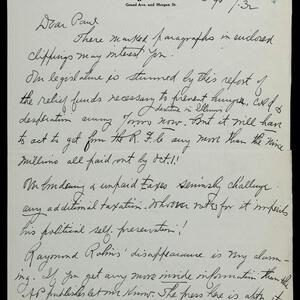 Grand Ave. and Morgan St.
/32
Dear Paul:
These marked paragraphs in enclosed
clippings may interest you.
Our legislature is stunned by this report of
the relief funds necessary to prevent hunger, cold &
desperation among destitute in Illinois now. But it will have
to act to get from the R.F.C. any more than the nine
millions all paid out by Oct. 1!
Our bonding & unpaid taxes seriously challenge
any additional taxation. Whoever votes for it imperils
his political self preservation!
Raymond Robins' disappearance is very alarm-
ing. If you get any more inside information than the
AP publishes let me know. The press here is